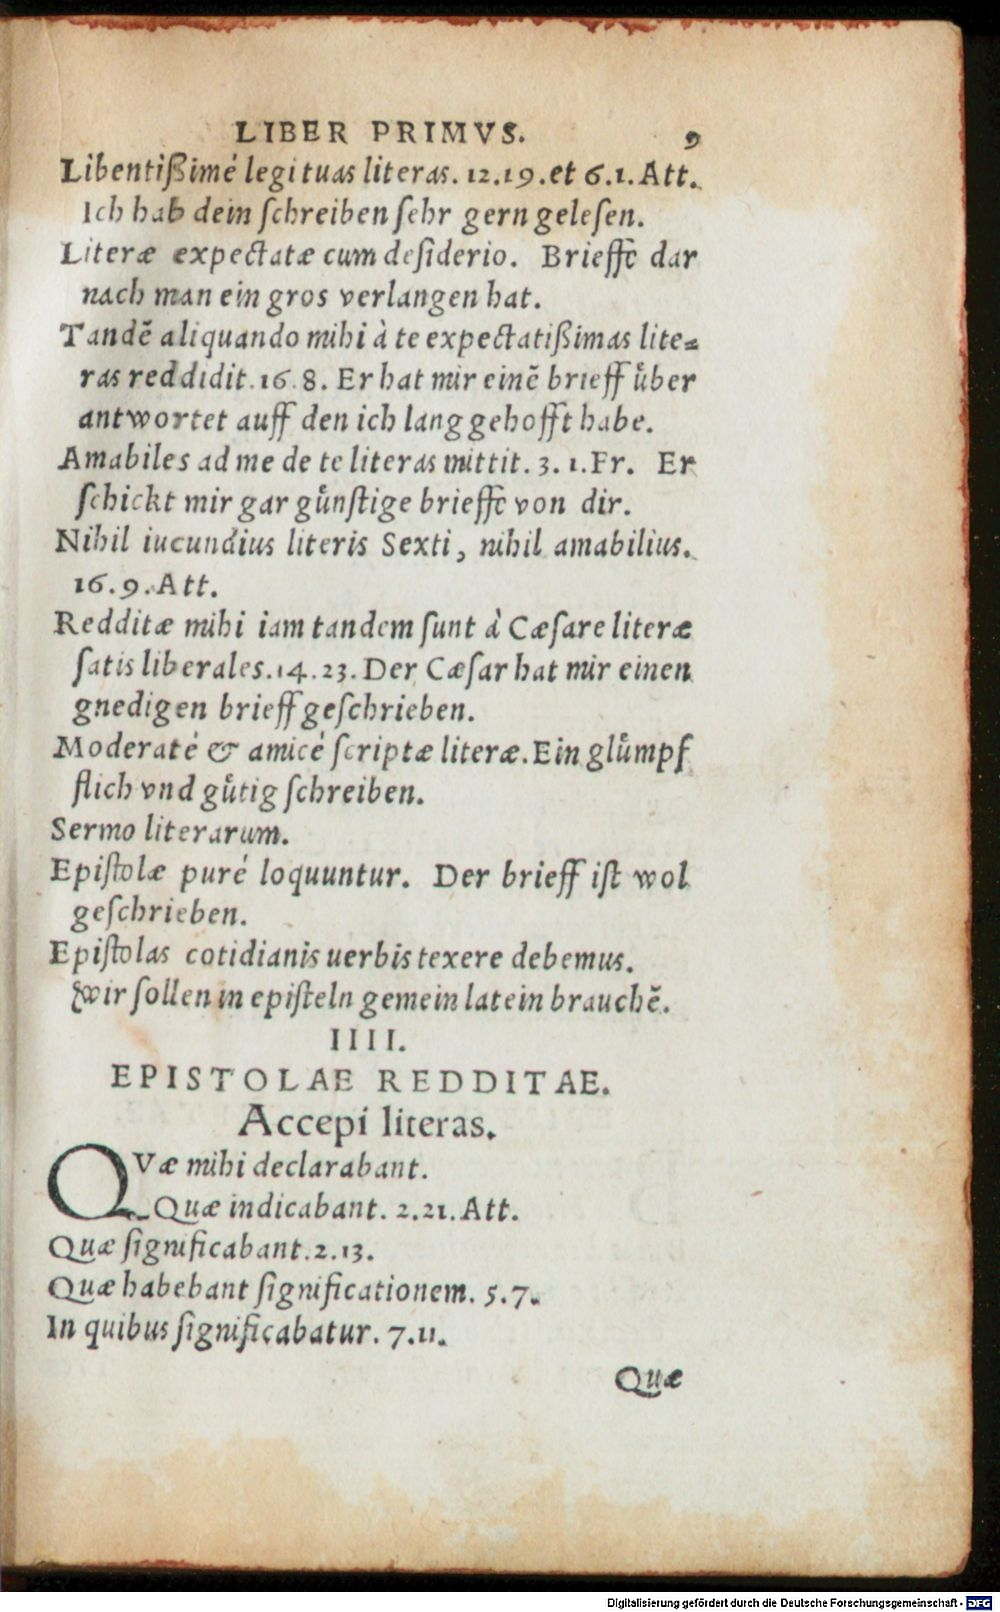 LIBER PRIMVS. 9
Libentißimé legi tuas literas. 12.19. et 6.1. Att.
Ich hab dein ſchreiben ſehr gern geleſen.
Literæ expectatæ cum deſiderio. Brieffe dar
nach man ein gros verlangen hat.
Tandē aliquando mihi à te expectatißimas lite=
ras reddidit. 16.8. Er hat mir einē brieff uͤber
antwortet auff den ich lang gehofft habe.
Amabiles ad me de te literas mittit. 3. 1. Fr. Er
ſchickt mir gar guͤnſtige brieffe von dir.
Nihil iucundius literis Sexti, nihil amabilius.
16.9. Att.
Redditæ mihi iam tandem ſunt à Cæſare literæ
ſatis liberales. 14. 23. Der Cæſar hat mir einen
gnedigen brieff geſchrieben.
Moderaté & amicé ſcriptæ literæ. Ein gluͤmpf
flich vnd guͤtig ſchreiben.
Sermo literarum.
Epiſtolæ puré loquuntur. Der brieff iſt wol
geſchrieben.
Epiſtolas cotidianis uerbis texere debemus.
Wir ſollen in epiſteln gemein latein brauchē.
IIII.
EPISTOLAE REDDITAE.
Accepi literas.
QVæ mihi declarabant.
Quæ indicabant. 2.21. Att.
Quæ ſignificabant. 2.13.
Quæ habebant ſignificationem. 5.7.
In quibus ſignificabatur. 7.11.
Quæ
Digitalisierung gefördert durch die Deutsche Forschungsgemeinschaft - DFG